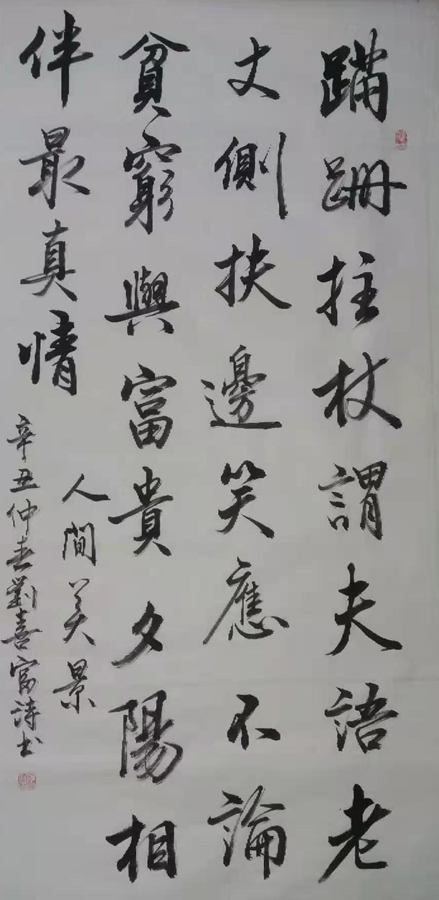 蹣跚拄杖謂夫語老
丈側扶邊笑應不論
貧窮與富貴夕陽相
伴最真情
人間美景
辛丑仲春劉喜富詩書